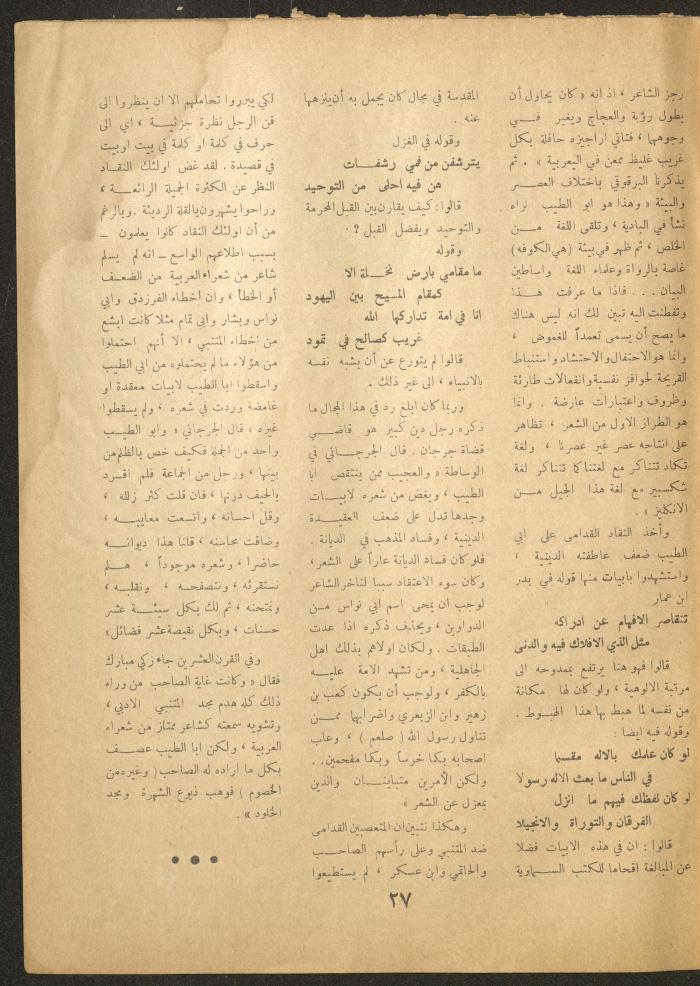 رجز الشاعر ، اذ انه « كان يحاول أن
يطول رؤبة والعجاج ويغبر فـــي
وجوههما ، فتاتي اراجيزه حافلة بكل
غريب غليظ ممعن في اليعربية » . ثم
يذكرنا البرقوقي باختلاف العصـر
والبيئة « وهذا هو ابو الطيب نراه
نشأ في البادية ، وتلقى اللغة مــن
الخلص ، ثم ظهر في بيئة (هي الكوفه)
غاصة بالرواة وعلماء اللغة واساطين
البيان . . . فاذا ما عرفت هــذا
وتفطنت اليه تبين لك انه ليس هناك
ما يصح أن يسمى تعمداً للغموض ،
وانما هو الاحتفال والاحتشاد واستنباط
القريحة لحوافز نفسية وانفعالات طارئة
وظروف واعتبارات عارضة . وانما
هو الطراز الاول من الشعر ، تظاهر
على انتاجه عصر غير عصرنا ، ولغة
تكاد تتناكر مع لغتنا كما تتناكر لغة
شكسبير مع لغة هذا الجيل مـــن
الانكليز » .
وأخذ النقاد القدامى على ابي
الطيب ضعف عاطفته الدينية ،
واستشهدوا بابيات منها قوله في بدر
ابن عمار
تتقاصر الافهام عن ادراكه
مثل الذي الافلاك فيه والدنى
قالوا فهو هنا يرتفع بممدوحه الى
مرتبة الالوهية ، ولو كان لها مكانة
من نفسه لما هبط بها هذا الهبـوط .
وقوله فيه ايضا :
لو كان علمك بالاله مقسما
في الناس ما بعث الاله رسولا
لو كان لفظك فيهم ما انزل
الفرقان والتوراة والانجيلا
قالوا : ان في هذه الابيات فضلا
عن المبالغة اقحاما للكتب السمــاوية
المقدسة في مجال كان يجمل به أن ينزهها
عنه .
وقوله في الغزل
يترشفن من فمي رشفــات
هن فيه احلى من التوحيد
قالوا : كيف يقارن بين القبل المحرمة
والتوحيد ويفضل القبل ? .
وقوله
ما مقامي بارض نخــلة الا
كمقام المسيح بين اليهود
انا في امة تداركها الله
غريب كصالح في ثمود
قالوا لم يتورع عن أن يشبه نفسه
بالانبياء ، الى غير ذلك .
وربما كان ابلغ رد في هذا المجال ما
ذكره رجل دين كبير هو قاضــي
قضاة جرجان . قال الجرجـاني في
الوساطة « والعجيب ممن ينتقص ابا
الطيب ، ويغض من شعره لابيــات
وجدها تدل على ضعف العقيــدة
الدينية ، وفساد المذهب في الديانة .
فلو كان فساد الديانة عاراً على الشعر،
وكان سوء الاعتقاد سببا لتاخر الشاعر
لوجب ان يمحى اسم ابي نواس مـن
الدواوين ، ويحذف ذكره اذا عدت
الطبقات . ولكان اولاهم بذلك اهل
الجاهلية ، ومن تشهد الامة عليــه
بالكفر ، ولوجب أن يكون كعب بن
زهير وابن الزبعرى واضرابهما ممــن
تناول رسول الله ( صلعم ) ، وعاب
اصحابه بكما خرسا وبكما مفحمين . .
ولكن الأمرين متباينــان والدين
بمعزل عن الشعر »
وهكذا نتبين ان المتعصبين القدامى
ضد المتنبي وعلى رأسهم الصاحــب
والحاتمي وابن عسكر ، لم يستطيعوا
لكي يبرروا تحاملهم الا ان ينظروا الى
فن الرجل نظرة جزئيــة ، اي الى
حرف في كلمة او كلمة في بيت او بيت
في قصيدة . لقد غض اولئك النقــاد
النظر عن الكثرة الجميلة الرائعــة ،
وراحوا يشهرون بالقلة الرديئة . وبالرغم
من أن اولئك النقاد كانوا يعلمون —
بسبب اطلاعهم الواسع — انه لم يسلم
شاعر من شعراء العربية من الضعـف
أو الخطأ ، وان اخطاء الفرزدق وابي
نواس وبشار وابي تمام مثلا كانت ابشع
من اخطاء المتنبي ، الا أنهم احتملوا
من هؤلاء ما لم يحتملوه من ابي الطيب
واسقطوا ابا الطيب لابيات معقدة او
غامضة وردت في شعره ، ولم يسقطوا
غيره « قال الجرجاني » وابو الطيـب
واحد من الجملة فكيف خص بالظلم من
بينها ، ورجل من الجماعة فلم افـرد
بالحيف دونها ، فان قلت كثر زلله ،
وقل احسانه ، واتسعت معايبــه ،
وضاقت محاسنه ، قلنا هذا ديوانــه
حاضرا ، وشعره موجوداً ، هــلم
نستقرئه ، ونتصفحه ، ونقلبــه ،
ونمتحنه ، ثم لك بكل سيئــة عشر
حسنات ، وبكل نقيصة عشر فضائل،
وفي القرن العشرين جاء زكي مبارك
فقال « وكانت غاية الصاحب من وراء
ذلك كله هدم مجد المتنبي الادبي ،
وتشويه سمعته كشاعر ممتاز من شعراء
العربية ، ولكن ابا الطيب عصـف
بكل ما اراده له الصاحب ( وغيره من
الخصوم ) فوهب ذيوع الشهرة ومجد
الخلود » .
● ● ●
٢٧